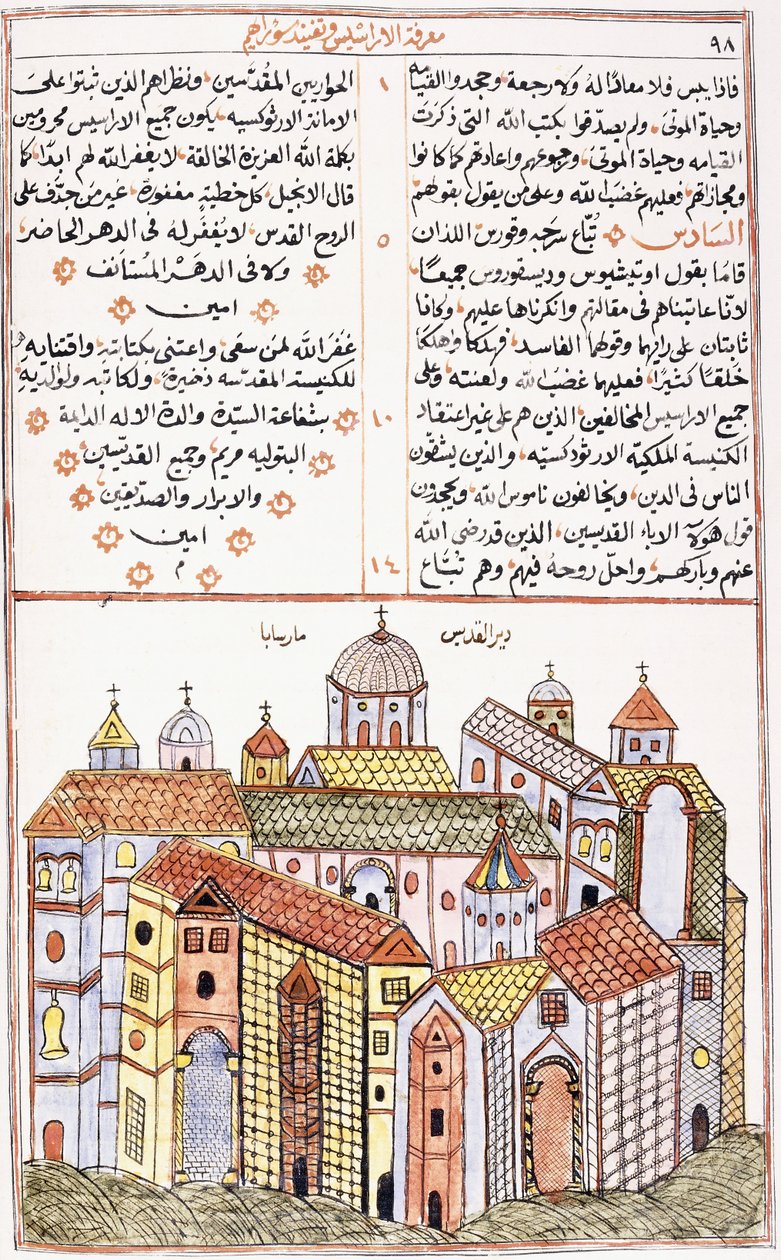 معرفة الاراسيس وتفنيد سؤ راهم
٩٨
فاذا يبس فلا معاد له ولا رجعة، وجحدوا القيامه
وحياة الموتى، ولم يصدقوا بكتب الله التي ذكرت
القيامه وحياة الموتى، ورجوعهم واعادتهم كما كانوا
ومجازاتهم، فعليهم غضب الله وعلى من يقول بقولهم
السادس تُبّاع سرجيه وقورس اللذان
قاما بقول اوتيشيوس وديسقوروس جميعًا،
لانّا عاتبناهم في مقالتهم وانكرناها عليهم، وكانا
ثابتان على رايهما وقولهما الفاسد، فهلكا واهلكا
خلقًا كثيرًا، فعليهما غضب الله ولعنته، وعلى
جميع الاراسيس المخالفين، الذين هم على غير اعتقاد
الكنيسة الملكية الارثوذكسيه، والذين يشقون
الناس في الدين، ويخالفون ناموس الله، ويجحدون
قول هولآء الاباء القديسين، الذين قد رضى الله
عنهم وباركهم، واحلّ روحهُ فيهم، وهم تُبّاع
١
٥
١٠
١٤
الحواريين المقدسين، ونظراهم الذين ثبتوا على
الامانة الارثوكسيه، يكون جميع الاراسيس محرومين
بكلمة الله العزيزة الخالقة، لا يغفر الله لهم ابدًا، كما
قال الانجيل، كل خطية مغفورة، غير من جدّف على
الروح القدس، لا يُغفر له في الدهر الحاضر،
ولا في الدهر المُستانف
امين
غفر الله لمن سعى، واعتنى بكتابته، واقتنابه
للكنيسة المقدسه ذخيرةً، ولكاتبه ولوالديه
بشفاعة السيّدة والدة الاله الدايمة
البتوليه مريم، وجميع القديسين
والابرار والصديقين
امين
م
دير القديس مارسابا